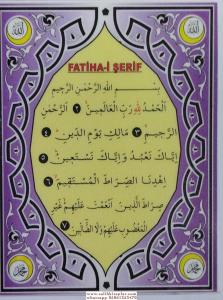 الله
الله
FATİHA-İ ŞERİF
بِسْمِ اللهِ الرَّحْمٰنِ الرَّحِيمِ
اَلْحَمْدُ لِلّٰهِ رَبِّ الْعَالَمِينَ ٢ اَلرَّحْمٰنِ
الرَّحِيمِ ٣ مَالِكِ يَوْمِ الدِّينِ ٤
اِيَّاكَ نَعْبُدُ وَاِيَّاكَ نَسْتَعِينُ ٥
اِهْدِنَا الصِّرَاطَ الْمُسْتَقِيمَ ٦
صِرَاطَ الَّذِينَ اَنْعَمْتَ عَلَيْهِمْ غَيْرِ
الْمَغْضُوبِ عَلَيْهِمْ وَلَا الضَّالِّينَ ٧
محمد
محمد